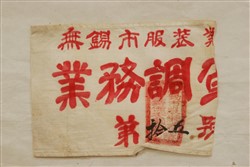 無錫市服裝業
業務調查
第拾五號